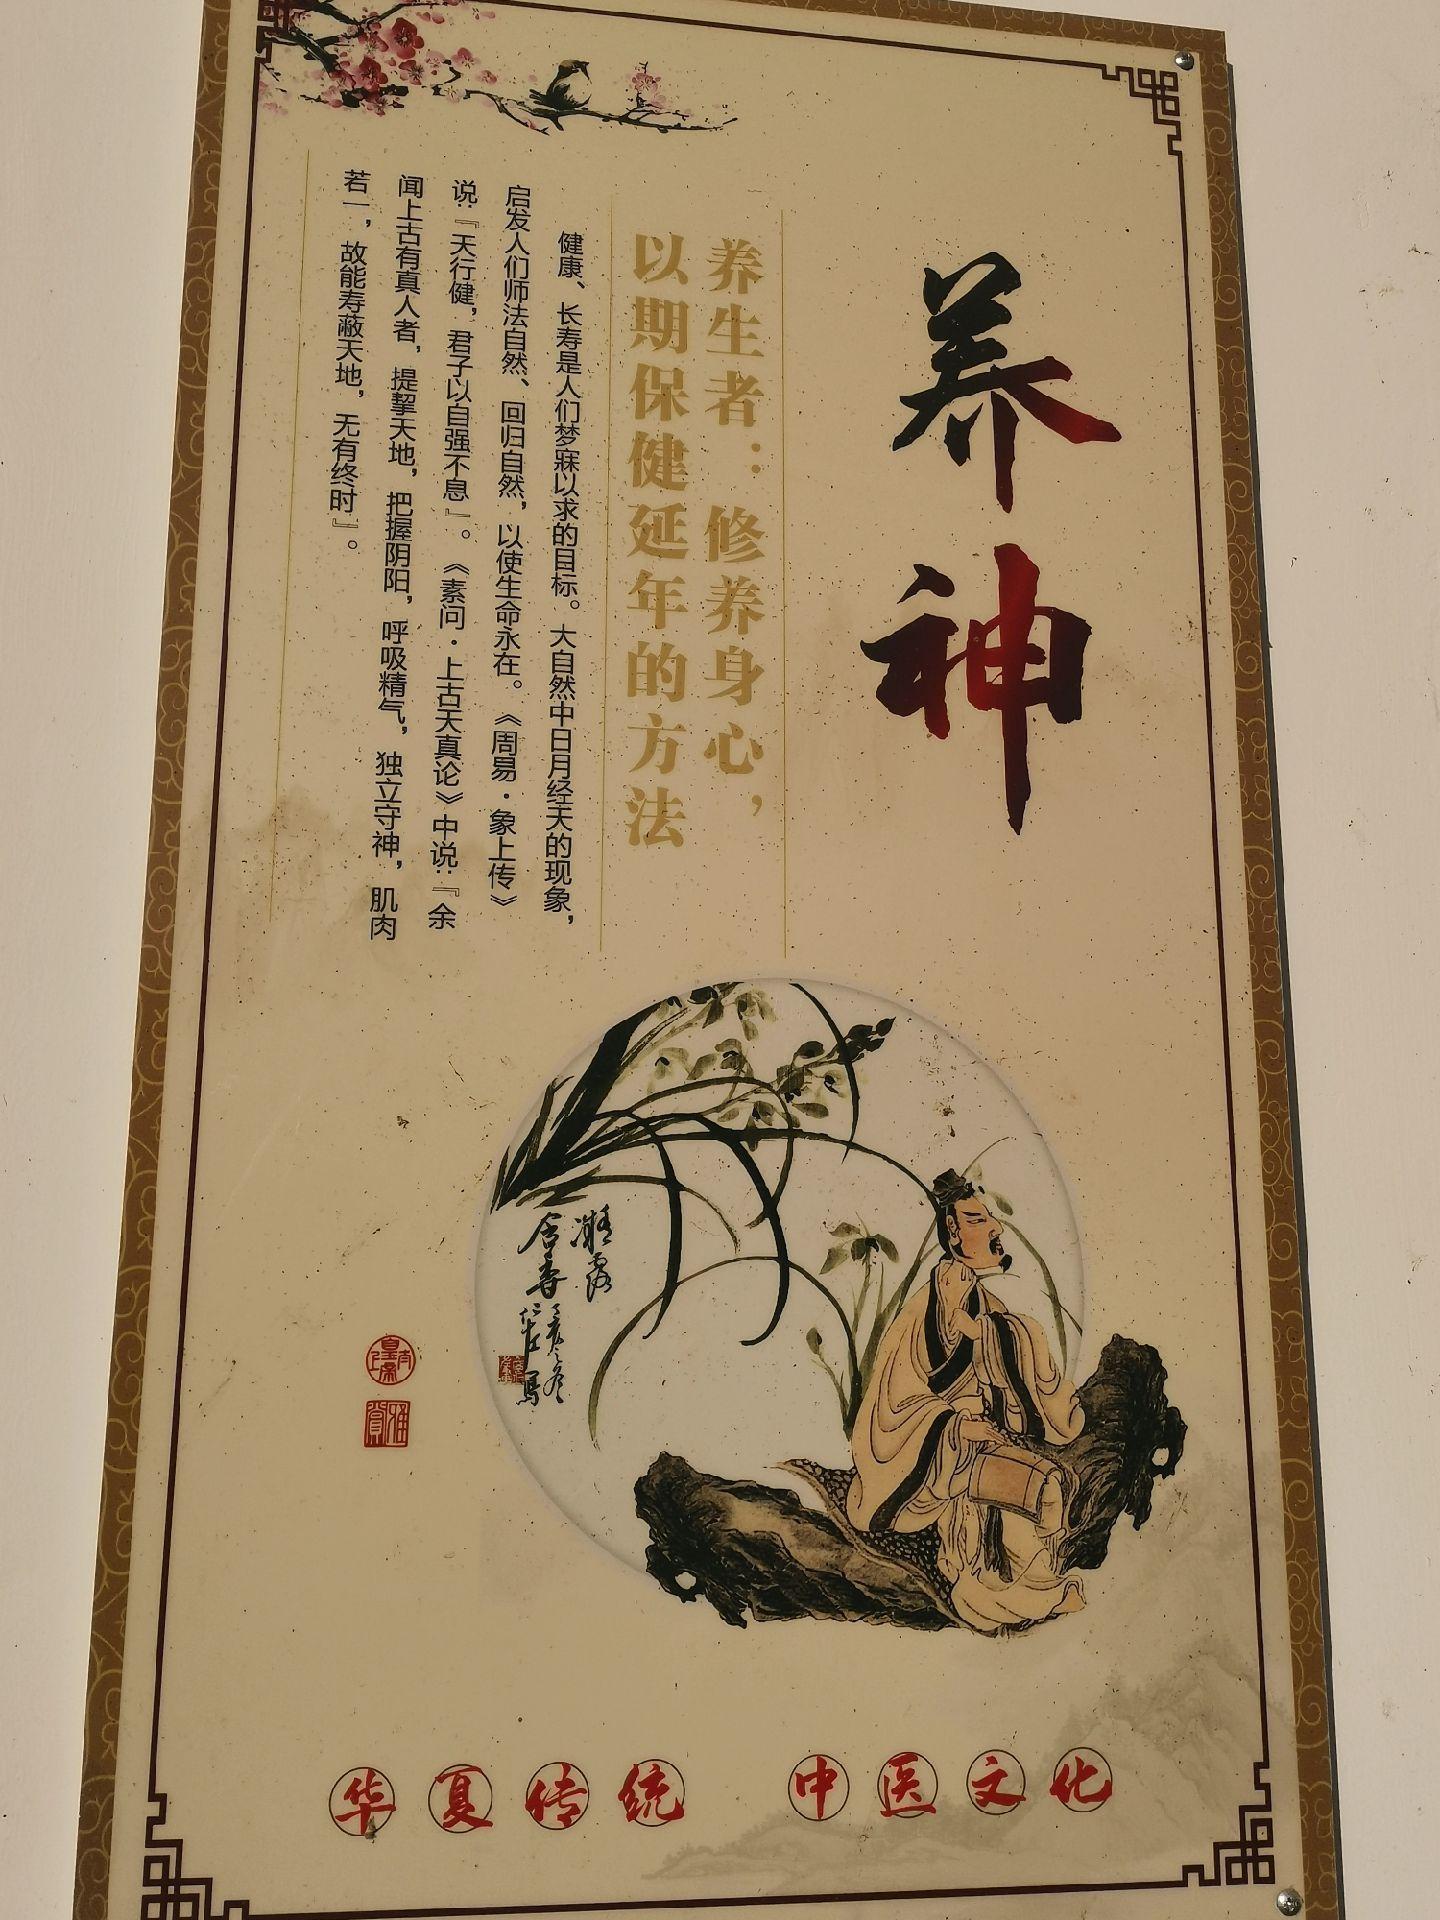 养神
养生者：修养身心，
以期保健延年的方法
健康、长寿是人们梦寐以求的目标。大自然中日月经天的现象，
启发人们师法自然、回归自然，以使生命永在。《周易·象上传》
说：『天行健，君子以自强不息』。《素问·上古天真论》中说：『余
闻上古有真人者，提挈天地，把握阴阳，呼吸精气，独立守神，肌肉
若一，故能寿蔽天地，无有终时』。
华夏传统 中医文化